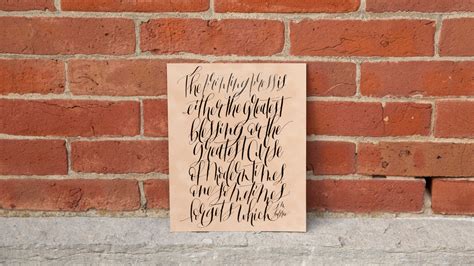 The printing press is
either the greatest
blessing or the
greatest curse
of modern times
one sometimes
forgets which